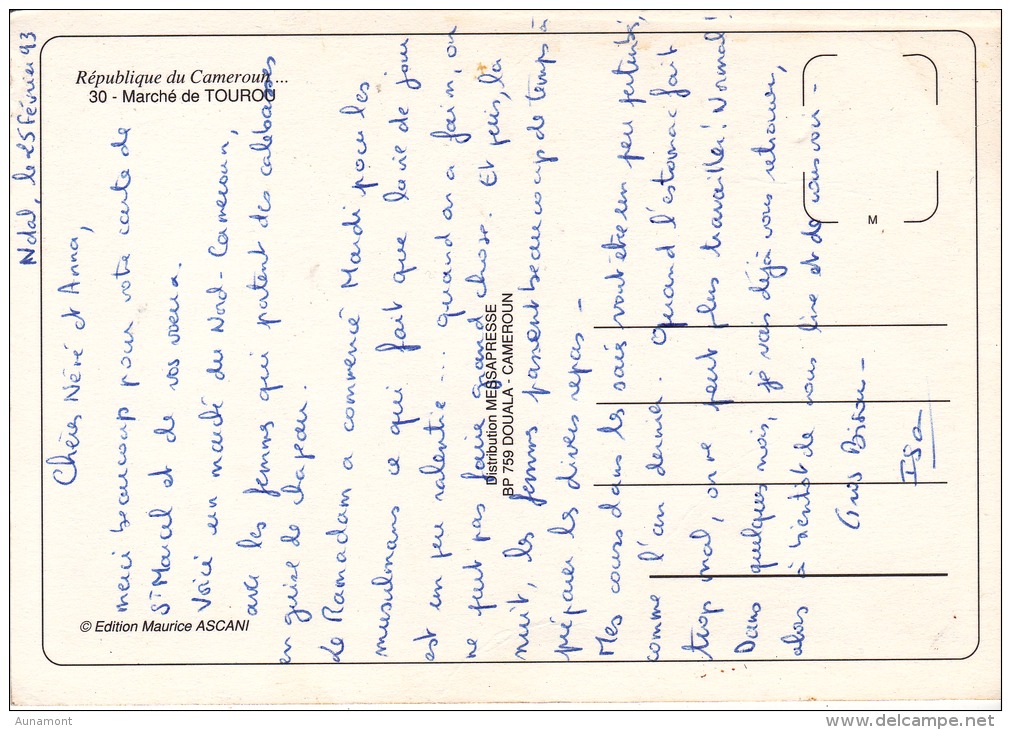 République du Cameroun ...
30 - Marché de TOUROU
© Edition Maurice ASCANI
Distribution MESSAPRESSE
BP 759 DOUALA - CAMEROUN
M
le 25 février 93
Chères Néné et Anna,
merci beaucoup pour votre carte de
St Marcel et de vos voeux.
Voici un marché du Nord-Cameroun,
avec les femmes qui portent des calebasses
en guise de chapeau.
Le Ramadam a commencé Mardi pour les
musulmans ce qui fait que la vie de jour
est un peu ralentie... quand on a faim, on
ne peut pas faire grand chose. Et puis, la
nuit, les femmes passent beaucoup de temps à
préparer les divers repas -
Mes cours dans les sarés vont être un peu perturbés,
comme l'an dernier. Quand l'estomac fait
trop mal, on ne peut plus travailler! Normal!
Dans quelques mois, je vais déjà vous retrouver,
alors à bientôt de vous lire et de vous voir -
Gros Bisous -
Isa
Aunamont
delcampe.net